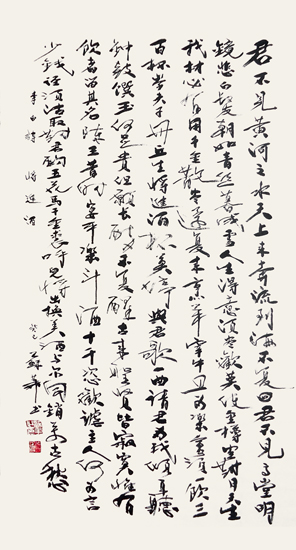 君不見黄河之水天上来奔流到海不復回君不見高堂明
鏡悲白髮朝如青絲暮成雪人生得意須尽歡莫使金樽空對月天生
我材必有用千金散尽還復来烹羊宰牛且为樂會須一飲三
百杯岑夫子丹丘生将進酒杯莫停與君歌一曲請君为我傾耳聽
鐘鼓饌玉何足貴但願長醉不復醒古来聖賢皆寂寞惟有
飲者留其名陳王昔時宴平樂斗酒十千恣歡謔主人何为言
少錢徑須沽取對君酌五花馬千金裘呼兒将出換美酒与尔同銷萬古愁
李白詩 将進酒 癸巳 蘇華书